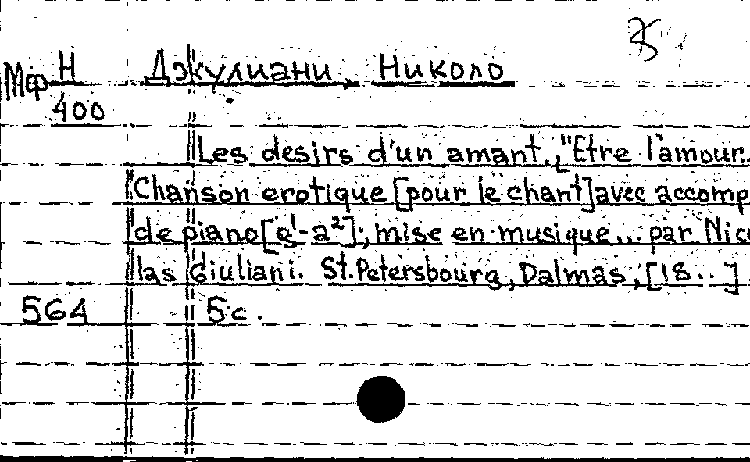 Мф Н Джулиани, Николо
400
Les desirs d'un amant., "Etre l'amour..
Chanson erotique [pour le chant] avec accomp
de piano [e¹-a²]; mise en musique... par Nico
las Giuliani. St. Petersbourg, Dalmas, [18..]
564 5 c.